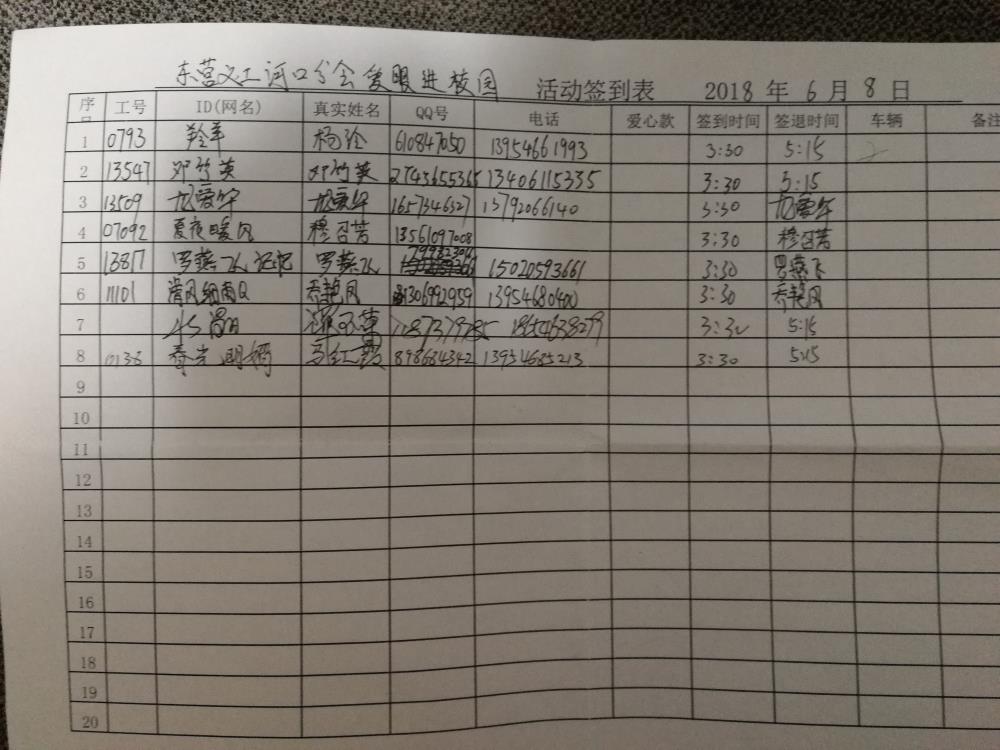 东营义工河口分会爱眼进校园 活动签到表 2018 年 6 月 8 日
序 工号 ID(网名) 真实姓名 QQ号 电话 爱心款 签到时间 签退时间 车辆 备注
1 0793 羚羊 杨玲 610847050 13954661993 3:30 5:15
2 13547 邓竹英 邓竹英 2743655365 13406115335 3:30 5:15
3 13509 尤爱华 尤爱华 1657346327 13792066140 3:30 尤爱华
4 07092 夏夜暖风 穆召芳 13561097008 3:30 穆召芳
5 13817 罗燕飞 罗燕飞 15020593661 3:30 罗燕飞
6 11101 清风细雨Q 乔艳凤 1306992959 13954680400 3:30 乔艳凤
7 18654638279 3:30 5:15
8 0138 春光明媚 马红霞 898684342 13954685213 3:30 5:15
9
10
11
12
13
14
15
16
17
18
19
20